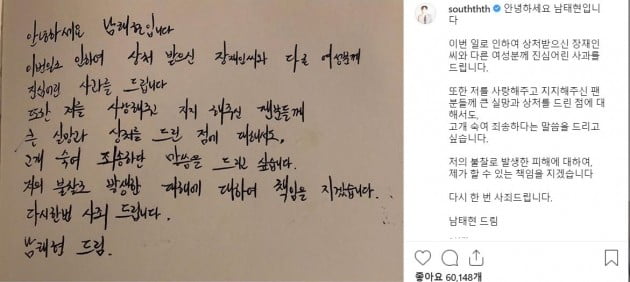 안녕하세요 남태현입니다
이번일로 인하여 상처 받으신 장재인씨와 다른 여성분께
진심어린 사과를 드립니다
또한 저를 사랑해주고 지지 해주신 팬분들께
큰 실망과 상처를 드린 점에 대해서도,
고개 숙여 죄송하단 말씀을 드리고 싶습니다.
저의 불찰로 발생한 피해에 대하여 책임을 지겠습니다.
다시한번 사죄 드립니다.
남태현 드림.
souththth 안녕하세요 남태현입니
다
이번 일로 인하여 상처받으신 장재인
씨와 다른 여성분께 진심어린 사과를
드립니다.
또한 저를 사랑해주고 지지해주신 팬
분들께 큰 실망과 상처를 드린 점에 대
해서도,
고개 숙여 죄송하다는 말씀을 드리고
싶습니다.
저의 불찰로 발생한 피해에 대하여,
제가 할 수 있는 책임을 지겠습니다
다시 한 번 사죄드립니다.
남태현 드림
좋아요 60,148개